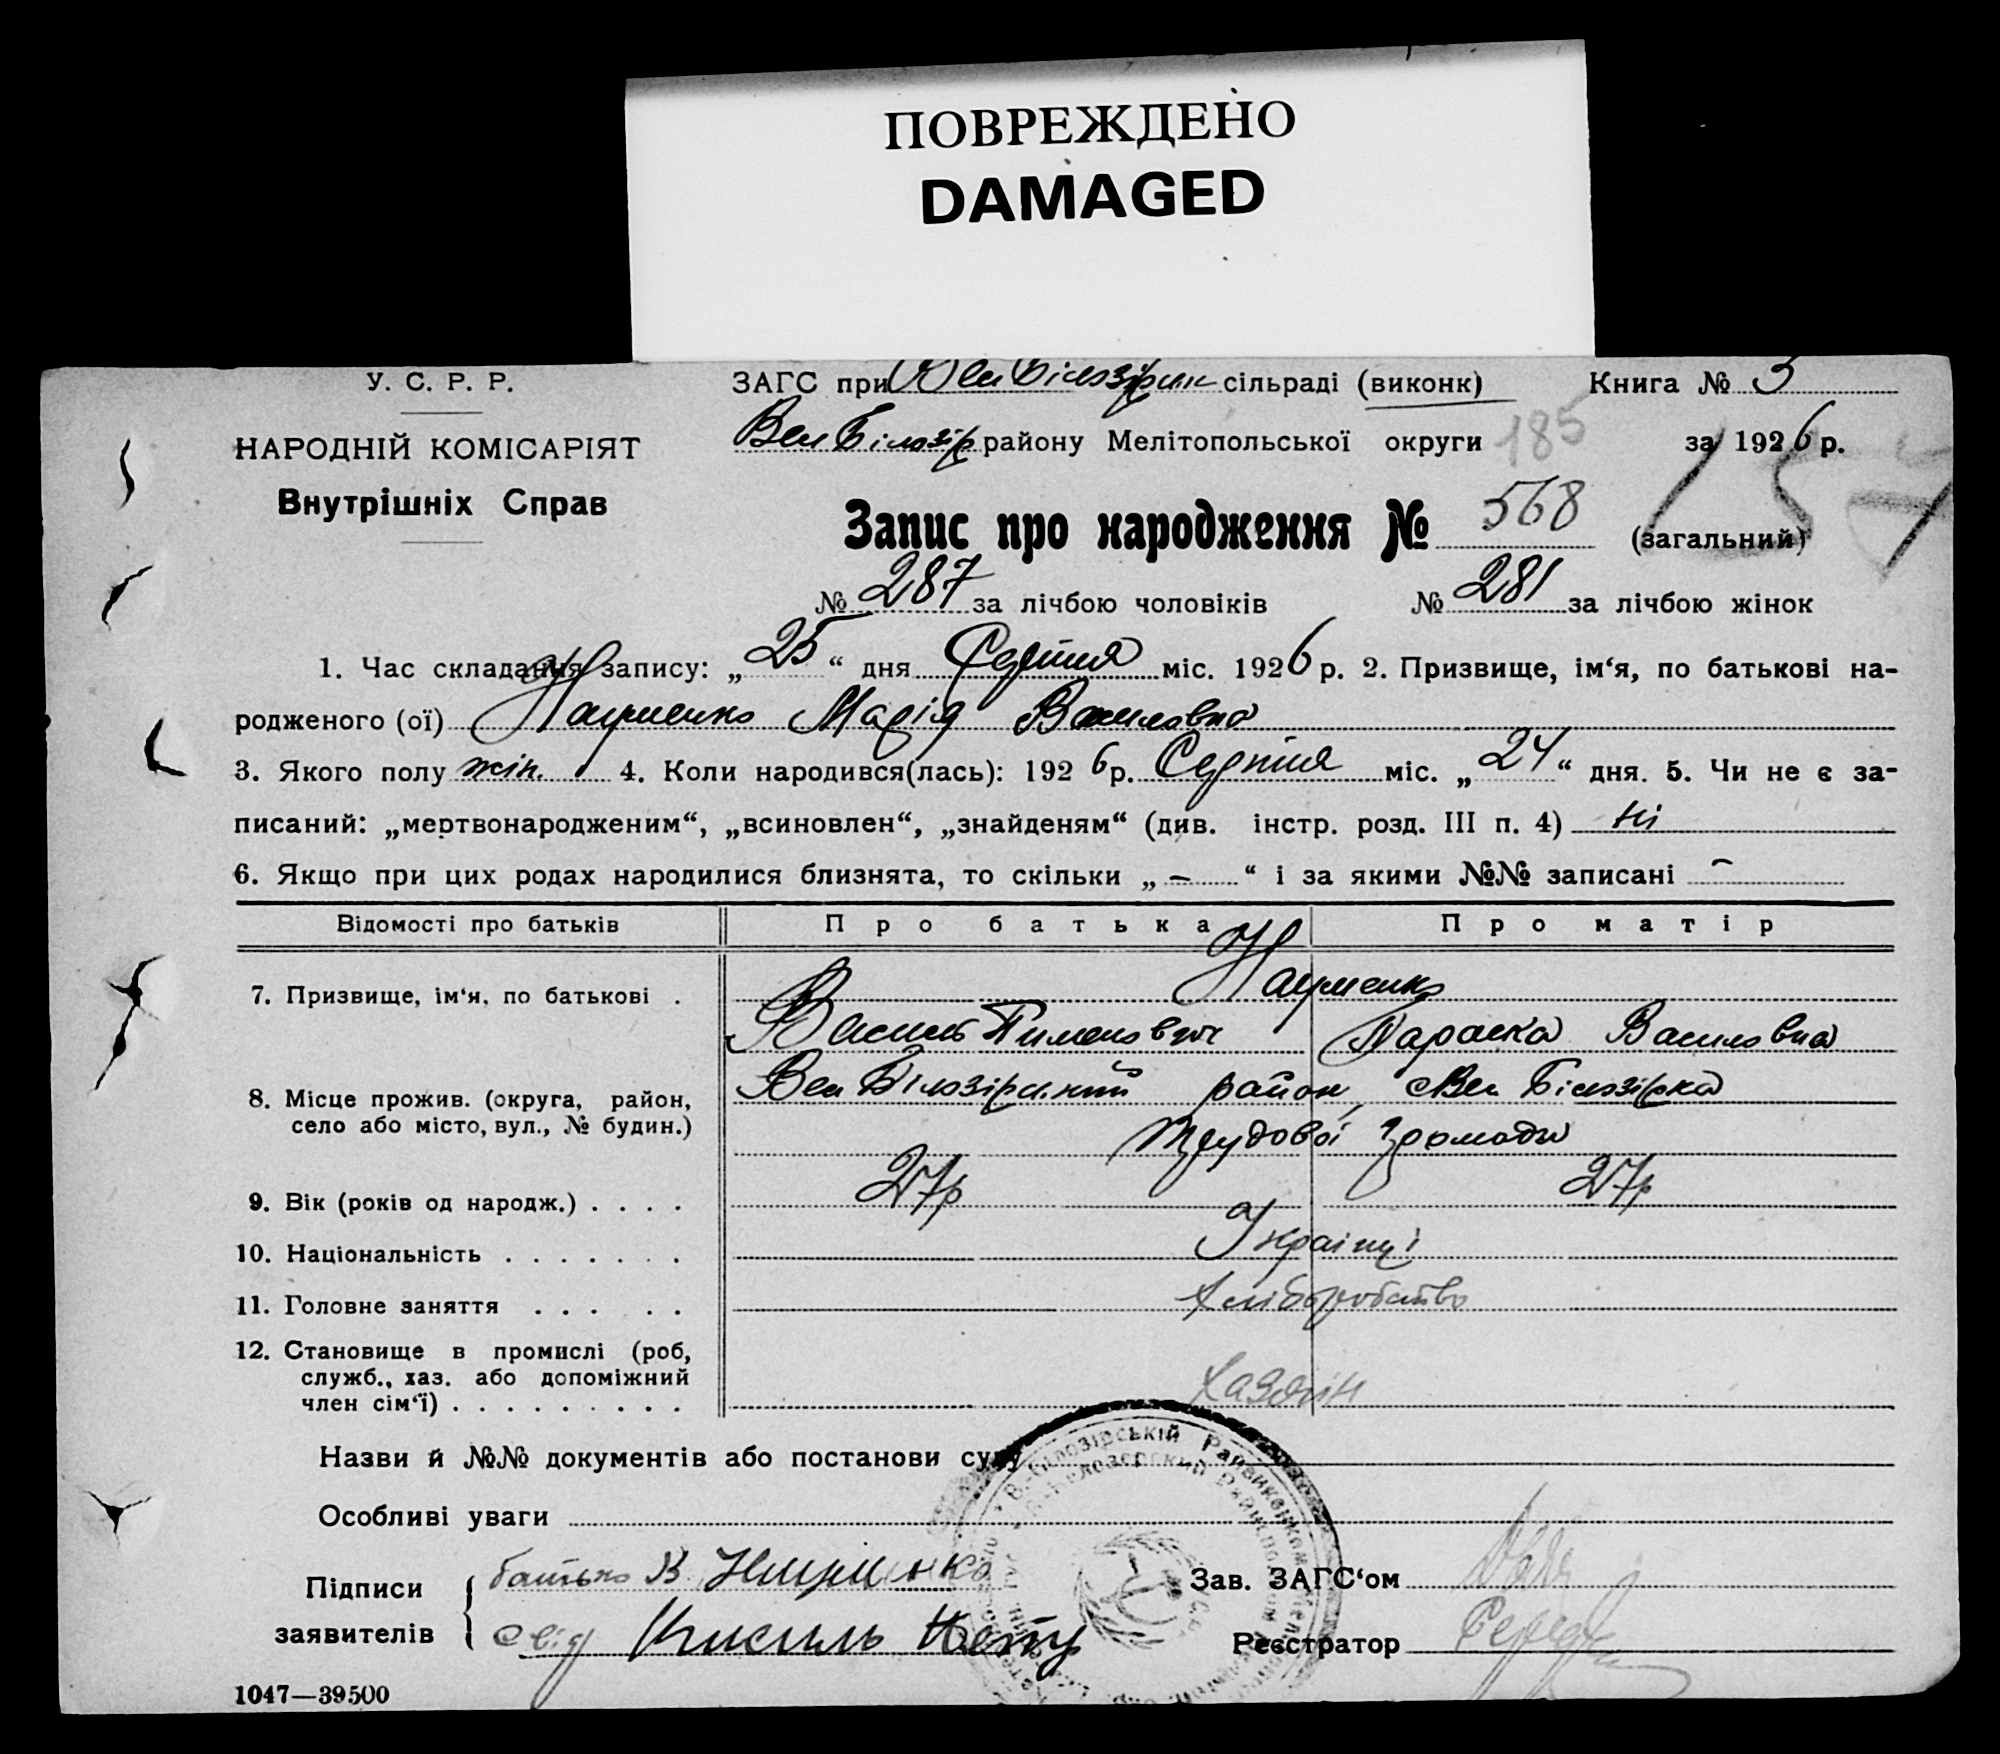 ПОВРЕЖДЕНО
DAMAGED
У. С. Р. Р.
ЗАГС при Вел Білозірськ сільраді (виконк)
Книга № 3
НАРОДНІЙ КОМІСАРІЯТ
Вел Білозір району Мелітопольської округи 185
за 1926 р.
157
Внутрішніх Справ
Запис про народження № 568 (загальний)
№ 287 за лічбою чоловіків № 281 за лічбою жінок
1. Час складання запису: „ 25 “ дня Серпня міс. 1926 р. 2. Призвище, ім‘я, по батькові на-
родженого (ої) Науменко Марія Василовна
3. Якого полу жін. 4. Коли народився(лась): 1926 р. Серпня міс. „ 24 “ дня. 5. Чи не є за-
писаний: „мертвонародженим“, „всиновлен“, „знайденям“ (див. інстр. розд. III п. 4) ні
6. Якщо при цих родах народилися близнята, то скільки „ – “ і за якими №№ записані –
Відомості про батьків Про батька Про матір
7. Призвище, ім‘я, по батькові . Науменко
Василь Пименович Параска Василовна
8. Місце прожив. (округа, район, село або місто, вул., № будин.) Вел Білозірський район, Вел Білозірка
трудової громади
9. Вік (років од народж.) . . . . 27р 27р
10. Національність . . . . . . . Українці
11. Головне заняття . . . . . Хліборобство
12. Становище в промислі (роб,
служб., хаз. або допоміжний
член сім‘ї) . . . . . . . . . Хазяїн
Назви й №№ документів або постанови суду
Особливі уваги
Підписи
заявителів
батько В Науменко
свід Кисиль Петр
Зав. ЗАГС‘ом
Реєстратор
1047—39500